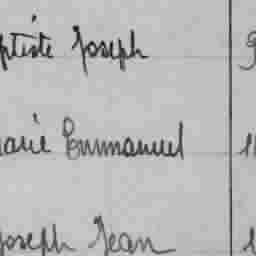 ptiste Joseph
arie Emmanuel
Joseph Jean